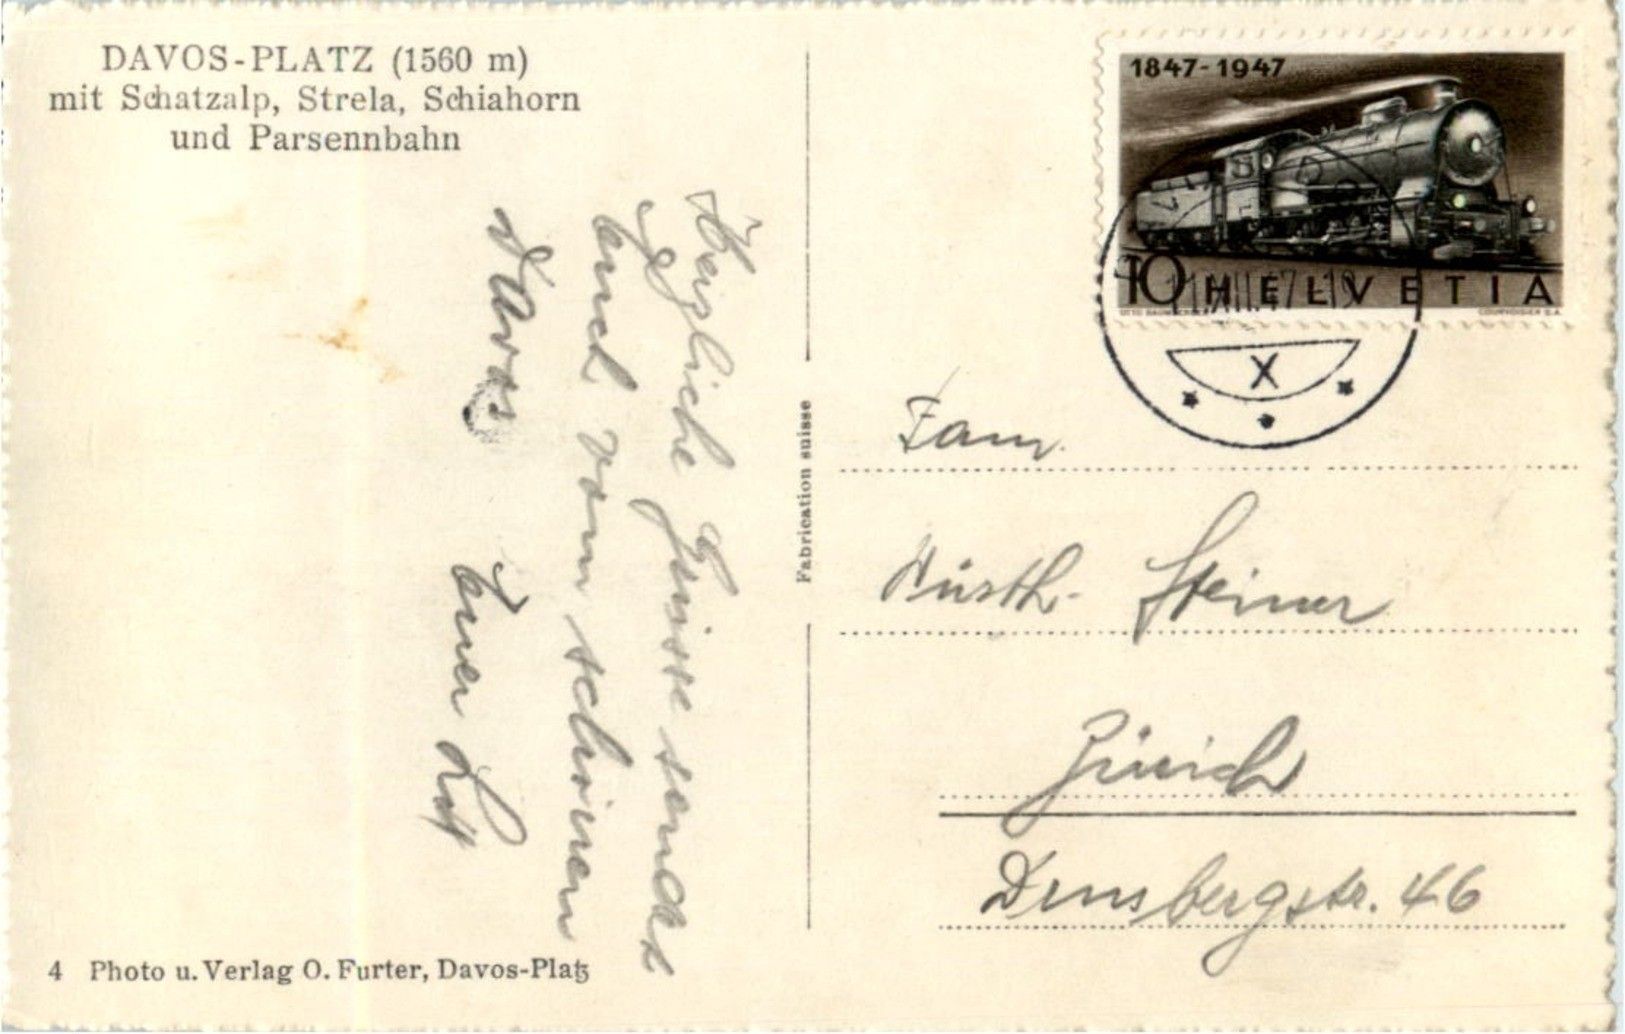 DAVOS-PLATZ (1560 m)
mit Schatzalp, Strela, Schiahorn
und Parsennbahn
Herzliche Grüsse sendet
Euch vom schönen
Davos Euer
Fabrication suisse
4 Photo u. Verlag O. Furter, Davos-Platz
1847-1947
10 HELVETIA
COURVOISIER S.A.
X
Fam.
Steiner
Zürich
46